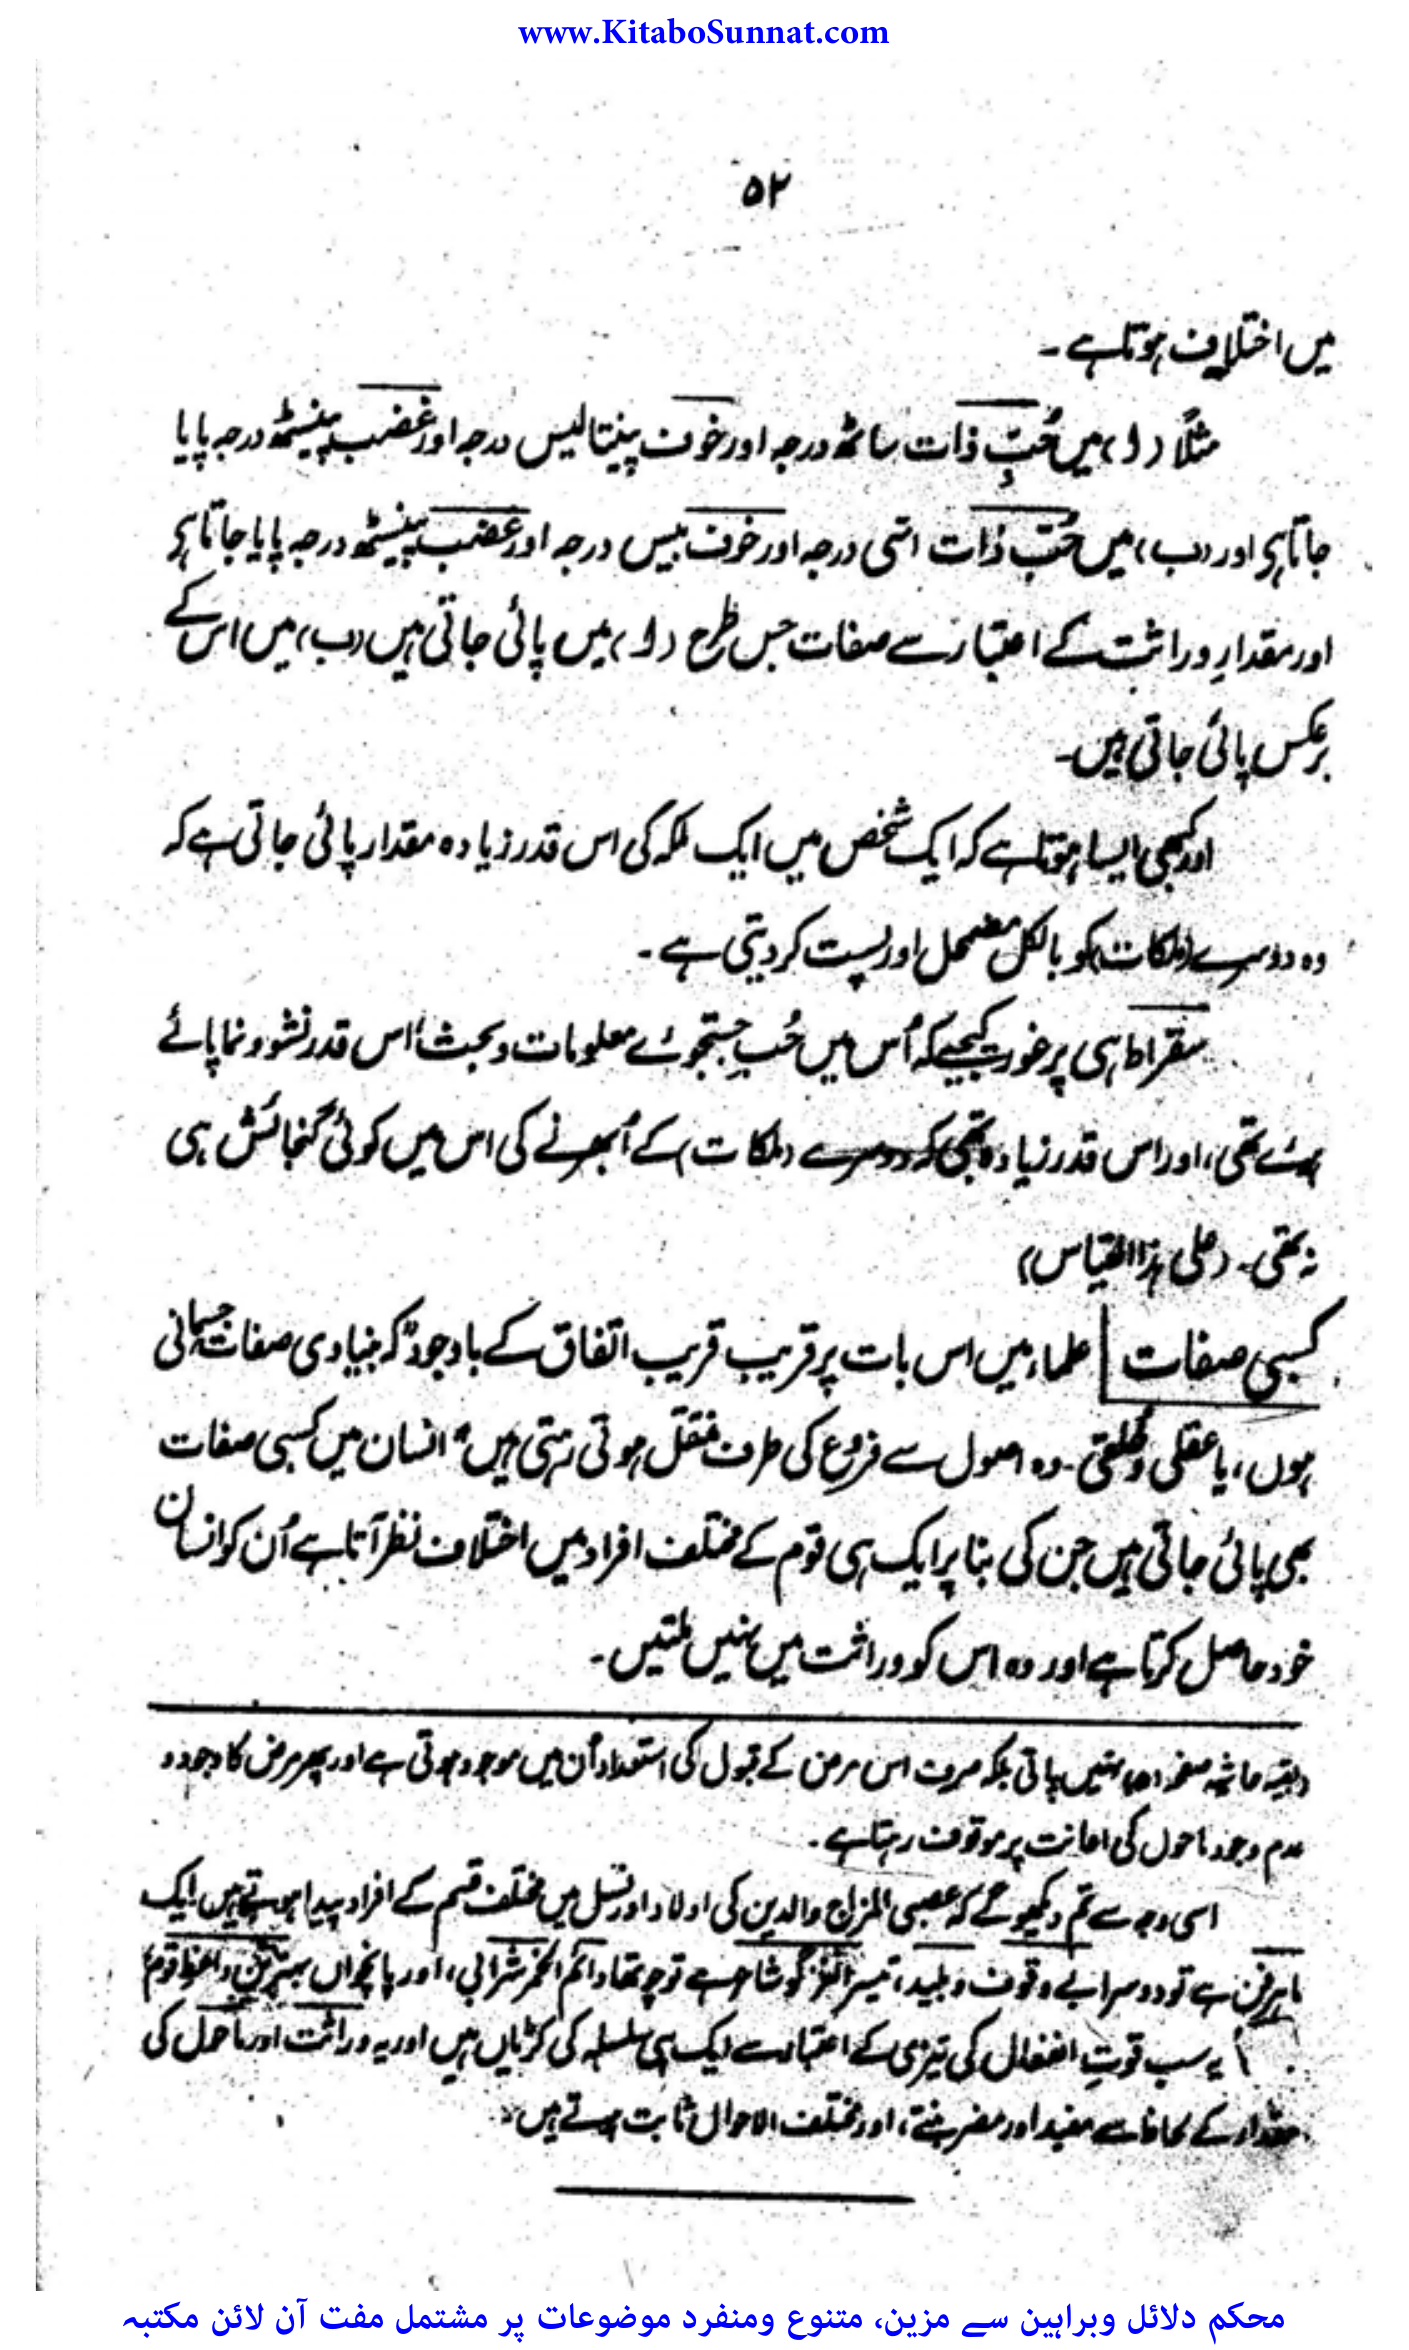 www.KitaboSunnat.com
۵۲
میں اختلاف ہوتا ہے۔
مثلاً (ا) میں حُبِّ ذات ساٹھ درجہ اور خوف پینتالیس درجہ اور غضب پینسٹھ درجہ پایا
جاتا ہی اور (ب) میں حُبِّ ذات اسّی درجہ اور خوف بیس درجہ اور غضب پینسٹھ درجہ پایا جاتا ہی
اور مقدارِ وراثت کے اعتبار سے صفات جس طرح (ا) میں پائی جاتی ہیں (ب) میں اس کے
برعکس پائی جاتی ہیں۔
اور کبھی ایسا ہوتا ہے کہ ایک شخص میں ایک ملکہ کی اس قدر زیادہ مقدار پائی جاتی ہے کہ
وہ دوسرے (ملکات) کو بالکل مضمحل اور پست کر دیتی ہے۔
سقراط ہی پر غور کیجیے کہ اُس میں حُبِ جستجوئے معلومات و بحث اس قدر نشو و نما پائے
ہوئے تھی، اور اس قدر زیادہ تھی کہ دوسرے (ملکات) کے اُبھرنے کی اس میں کوئی گنجائش ہی
نہ تھی۔ (علی ہذا القیاس)
کسبی صفات علماء میں اس بات پر قریب قریب اتفاق کے باوجود کہ بنیادی صفات جسمانی
ہوں، یا عقلی و خُلقی۔ وہ اصول سے فروع کی طرف منتقل ہوتی رہتی ہیں" انسان میں کسبی صفات
بھی پائی جاتی ہیں جن کی بنا پر ایک ہی قوم کے مختلف افراد میں اختلاف نظر آتا ہے اُن کو انسان
خود حاصل کرتا ہے اور وہ اس کو وراثت میں نہیں ملتیں۔
(بقیہ حاشیہ صفحہ ۵۱) نہیں پاتی بلکہ صرف اس مرض کے قبول کی استعداد اُن میں موجود ہوتی ہے اور پھر مرض کا وجود و
عدم وجود ماحول کی اعانت پر موقوف رہتا ہے۔
اسی وجہ سے تم دیکھو گے کہ عصبی المزاج والدین کی اولاد اور نسل میں مختلف قسم کے افراد پیدا ہوتے ہیں ایک
ماہرِ فن ہے تو دوسرا بے وقوف و بلید، تیسرا نغز گو شاعر ہے تو چوتھا دائم الخمر شرابی، اور پانچواں بہترین واعظِ قوم
یہ سب قوتِ انفعال کی تیزی کے اعتبار سے ایک ہی سلسلہ کی کڑیاں ہیں اور یہ وراثت اور ماحول کی
مقدار کے لحاظ سے مفید اور مضر بنتے، اور مختلف الاحوال ثابت ہوتے ہیں۔
محکم دلائل وبراہین سے مزین، متنوع ومنفرد موضوعات پر مشتمل مفت آن لائن مکتبہ